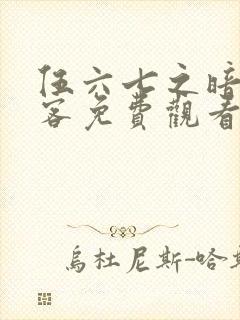 伍六七之暗
客免費觀看
烏杜尼斯-哈